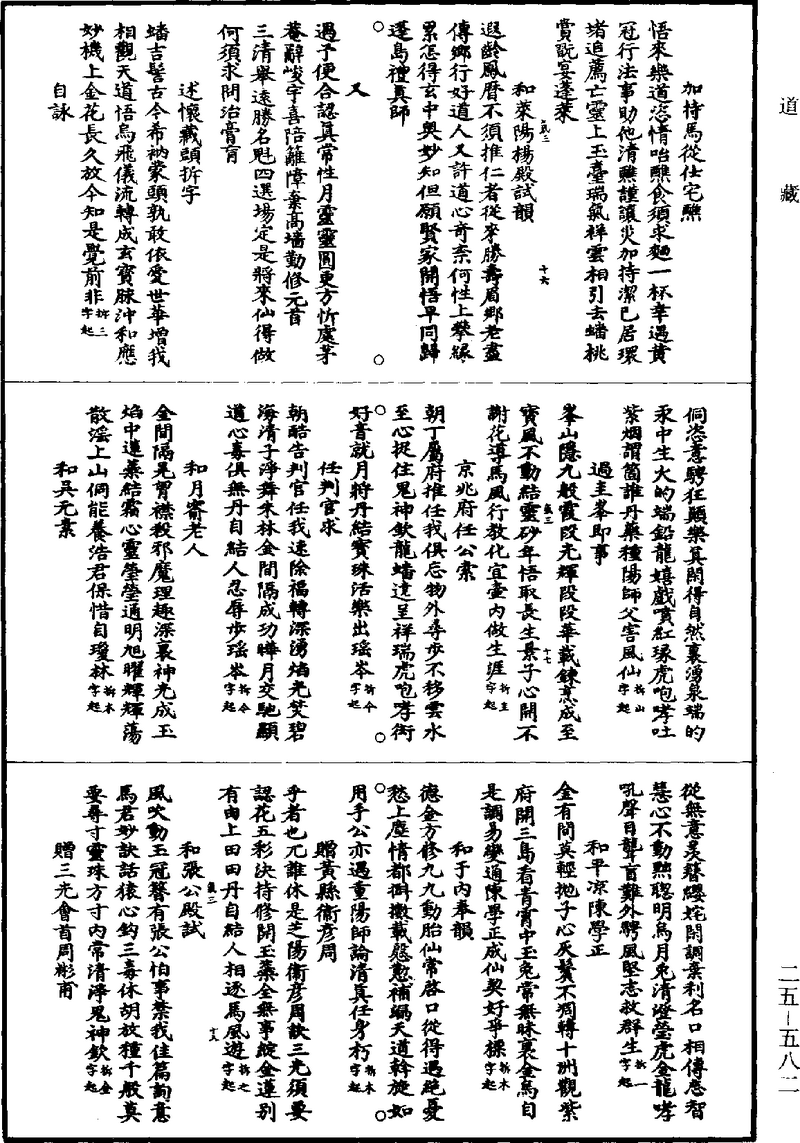 道藏
加持馬從仕宅醮
悟來樂道恣情咍醮食須求麵一杯幸遇黃
冠行法事助他清醮謹讓災加持潔已居環
堵追薦亡靈上玉臺瑞氣祥雲相引去蟠桃
賞翫宴蓬萊
和萊陽楊殿試韻
遐齡鳳曆不須推仁者從來勝壽眉鄉老盡
傳鄉行好道人又許道心奇柰何性上攀緣
累怎得玄中奧妙知但願賢家開悟早同歸
蓬島禮真師
又
過予便合認真常性月靈靈圓更方忻處茅
菴辭峻宇喜陪籬障棄高墻勤修元首
三清舉遠勝名魁四選場定是將來仙得做
何須求問治膏肓
述懷藏頭拆字
蟠吉髻古今希衲蒙頭孰敢依愛世華增我
相觀天道悟烏飛儀流轉成玄寶脉沖和應
妙機上金花長久放今知是覺前非拆三字起
自詠
侗恣意騁狂顛樂真閑得自然裏湧泉端的
汞中生火的端鉛龍嬉戲噴紅琭虎咆哮吐
紫烟謂箇誰丹藥種陽師父害風仙拆山字起
過圭峯即事
峯山隱九般霞段光輝段段華載鍊烹成至
寶風不動結靈砂年悟取長生景子心開不
謝花導馬風行教化宜壺內做生涯拆圭字起
京兆府任公索
朝丁屬府推任我俱忘物外尋步不移雲水
至心捉住鬼神欽龍蟠遶呈祥瑞虎咆哮銜
好音就月將丹結寶珠活樂出瑶岑拆今字起
任判官求
朝酷告判官任我速除福轉深湧焰光焚碧
海清子淨舞朱林金間隔成功曄月交馳顯
道心喜俱無丹自結人忍辱步瑶岑拆今字起
和月齋老人
金間隔晃胷襟殺邪魔理趣深裏神光成玉
焰中蓮蘂結霜心靈瑩瑩通明旭曜輝輝蕩
散滛上山侗能養浩君保惜自瓊林拆木字起
和吳元素
從無意羡簪纓姹閑調棄利名口相傳慇智
慧心不動黜聰明烏月兔清澄瑩虎金龍哮
吼聲目聾盲難外騁風堅志救羣生拆一字起
和平涼陳學正
金有問莫輕抛子心灰鬢不凋轉十洲觀紫
府開三島看青霄中玉兔常無昧裏金烏自
是調易變通陳學正成仙契好爭標拆木字起
和于內奉韻
德全方修九九動胎仙常啓口從得遇絶憂
愁上塵情都抖擻載慇懃補綴天道斡旋如
用手公亦遇重陽師論清真任身朽拆木字起
贈黃縣衞彦周
乎者也兀誰休是芝陽衞彦周訣三光須要
認花五彩決持修開玉蘂全無事綻金蓮別
有由上田田丹自結人相逐馬風遊拆之字起
和張公殿試
風吹動玉冠簪有張公怕事禁我佳篇詞意
馬君妙訣話猿心鈎三毒休胡放種千般莫
要尋寸靈珠方寸內常清淨鬼神欽拆金字起
贈三光會首周彬甫
二五—五八二